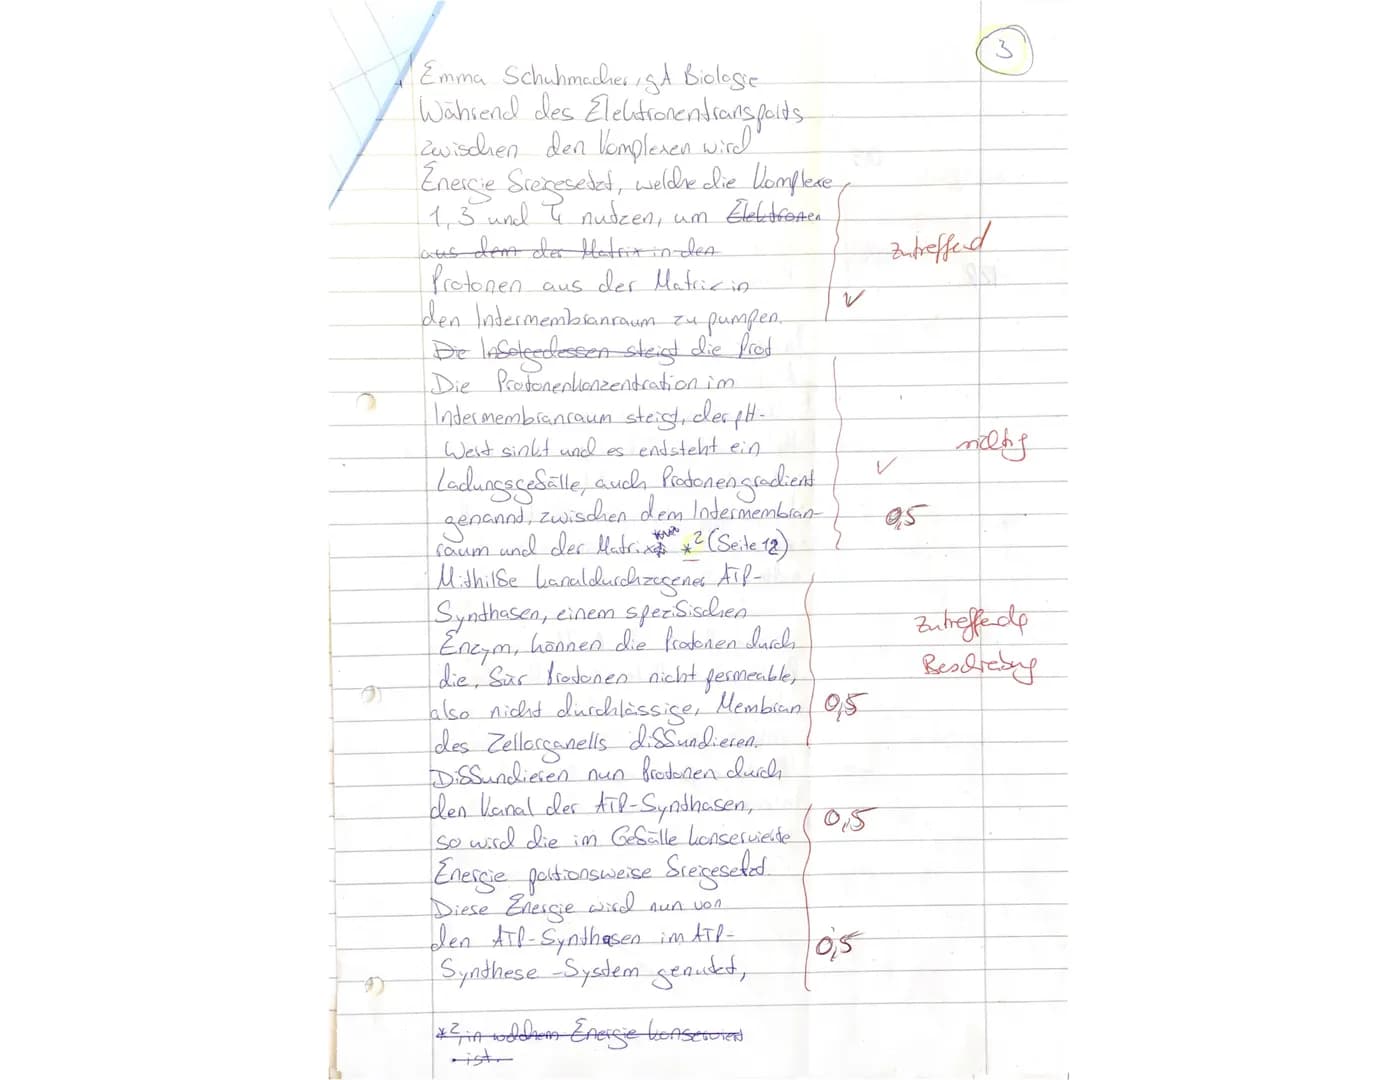 3
Emma Schuhmacher, gA Biologie
Während des Elektronentransports
zwischen den Komplexen wird
Energie freigesetzt, welche die Komplexe
1, 3 und 4 nutzen, um Elektronen
aus dem der Matrix in den
Protonen aus der Matrix in
den Intermembranraum zu pumpen.
zutreffend
✓
Die Infolgedessen steigt die Prot
Die Protonenkonzentration im
Intermembranraum steigt, der pH-
Wert sinkt und es entsteht ein
Ladungsgefälle, auch Protonengradient
genannt, zwischen dem Intermembran-
raum und der Matrix *2 (Seite 12)
richtig
✓
0,5
Mithilfe kanaldurchzogener ATP-
Synthasen, einem spezifischen
Enzym, können die Protonen durch
die, für Protonen nicht permeable,
also nicht durchlässige, Membran
des Zellorganells diffundieren.
zutreffende
Beschreibung
0,5
Diffundieren nun Protonen durch
den Kanal der ATP-Synthasen,
so wird die im Gefälle konservierte
Energie portionsweise freigesetzt.
0,5
Diese Energie wird nun von
den ATP-Synthasen im ATP-
Synthese-System genutzt,
0,5
*2, in welchem Energie konserviert
ist.